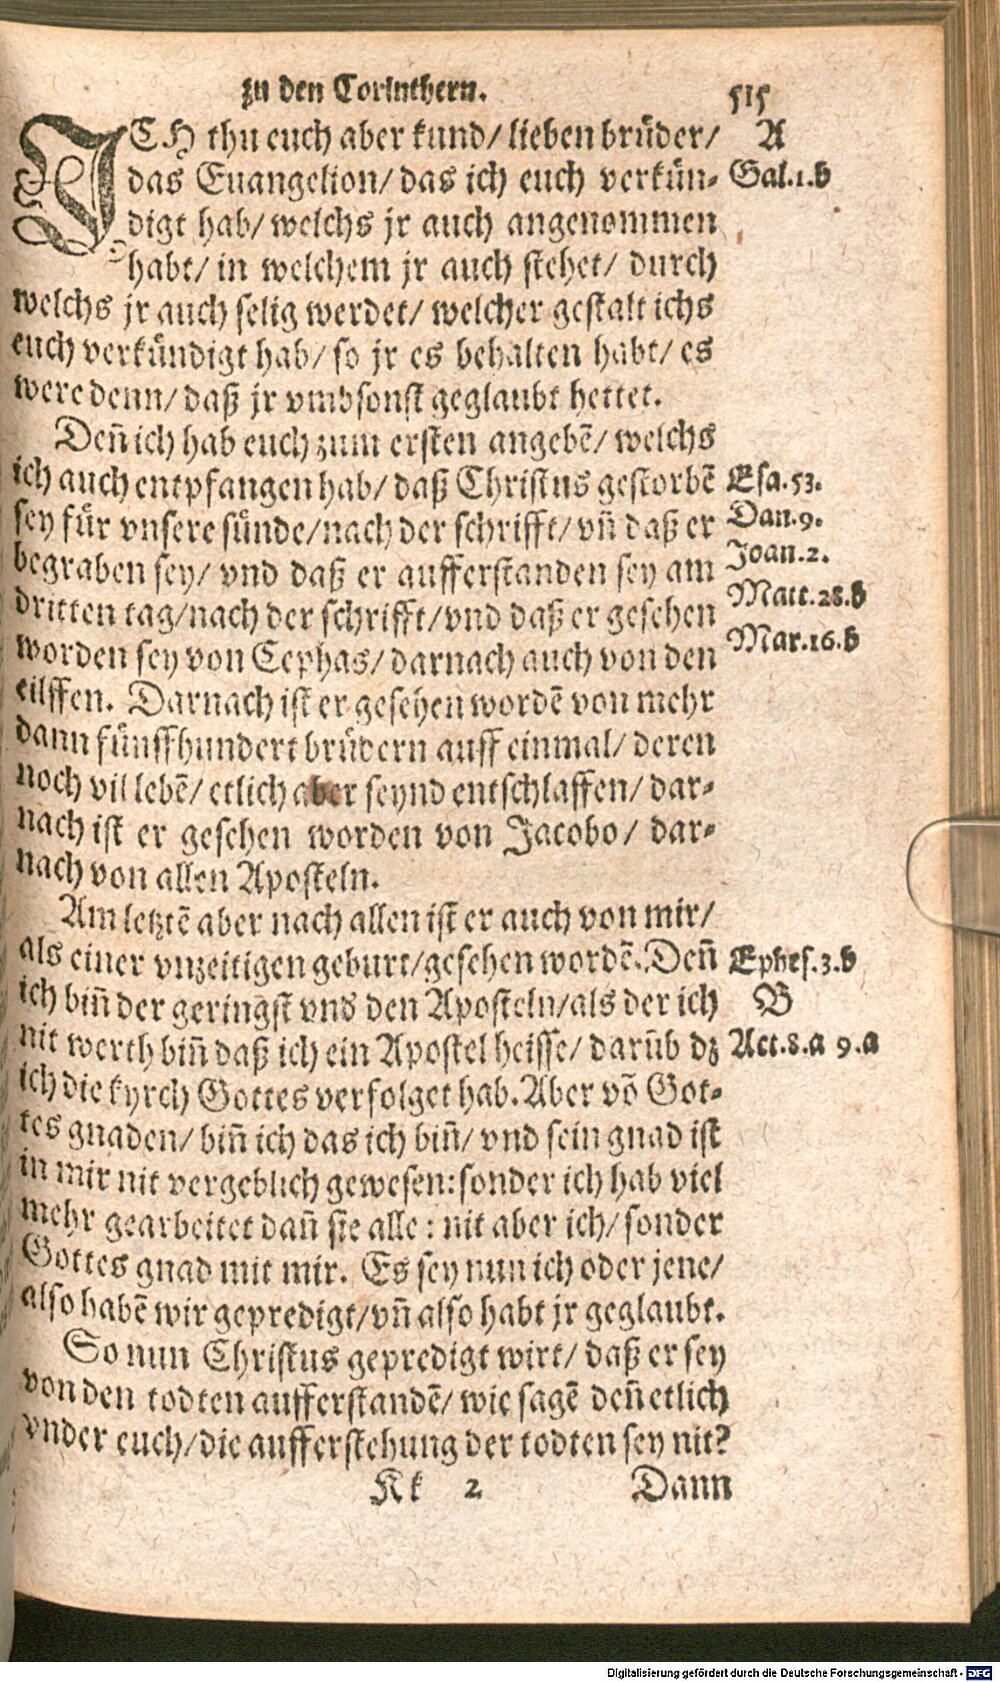 zu den Corinthern. 515
ICH thu euch aber kund/ lieben brüder/ A
das Euangelion/ das ich euch verkün- Gal.1.b
digt hab/ welchs jr auch angenommen
habt/ in welchem jr auch stehet/ durch
welchs jr auch selig werdet/ welcher gestalt ichs
euch verkündigt hab/ so jr es behalten habt/ es
were denn/ daß jr vmbsonst geglaubt hettet.
Deñ ich hab euch zum ersten angebẽ/ welchs
ich auch entpfangen hab/ daß Christus gestorbẽ Esa.53.
sey für vnsere sünde/ nach der schrifft/ vñ daß er Dan.9.
begraben sey/ vnd daß er aufferstanden sey am Joan.2.
dritten tag/ nach der schrifft/ vnd daß er gesehen Matt.28.b
worden sey von Cephas/ darnach auch von den Mar.16.b
eilffen. Darnach ist er gesehen wordẽ von mehr
dann fünffhundert brüdern auff einmal/ deren
noch vil lebẽ/ etlich aber seynd entschlaffen/ dar-
nach ist er gesehen worden von Jacobo/ dar-
nach von allen Aposteln.
Am letztẽ aber nach allen ist er auch von mir/
als einer vnzeitigen geburt/ gesehen wordẽ. Deñ Ephes.3.b
ich biñ der geringst vnd den Aposteln/ als der ich B
nit werth biñ daß ich ein Apostel heisse/ darũb dz Act.8.a 9.a
ich die kyrch Gottes verfolget hab. Aber võ Got-
tes gnaden/ biñ ich das ich biñ/ vnd sein gnad ist
in mir nit vergeblich gewesen: sonder ich hab viel
mehr gearbeitet dañ sie alle: nit aber ich/ sonder
Gottes gnad mit mir. Es sey nun ich oder jene/
also habẽ wir gepredigt/ vñ also habt jr geglaubt.
So nun Christus gepredigt wirt/ daß er sey
von den todten aufferstandẽ/ wie sagẽ deñ etlich
vnder euch/ die aufferstehung der todten sey nit?
Kk 2 Dann
Digitalisierung gefördert durch die Deutsche Forschungsgemeinschaft - DFG